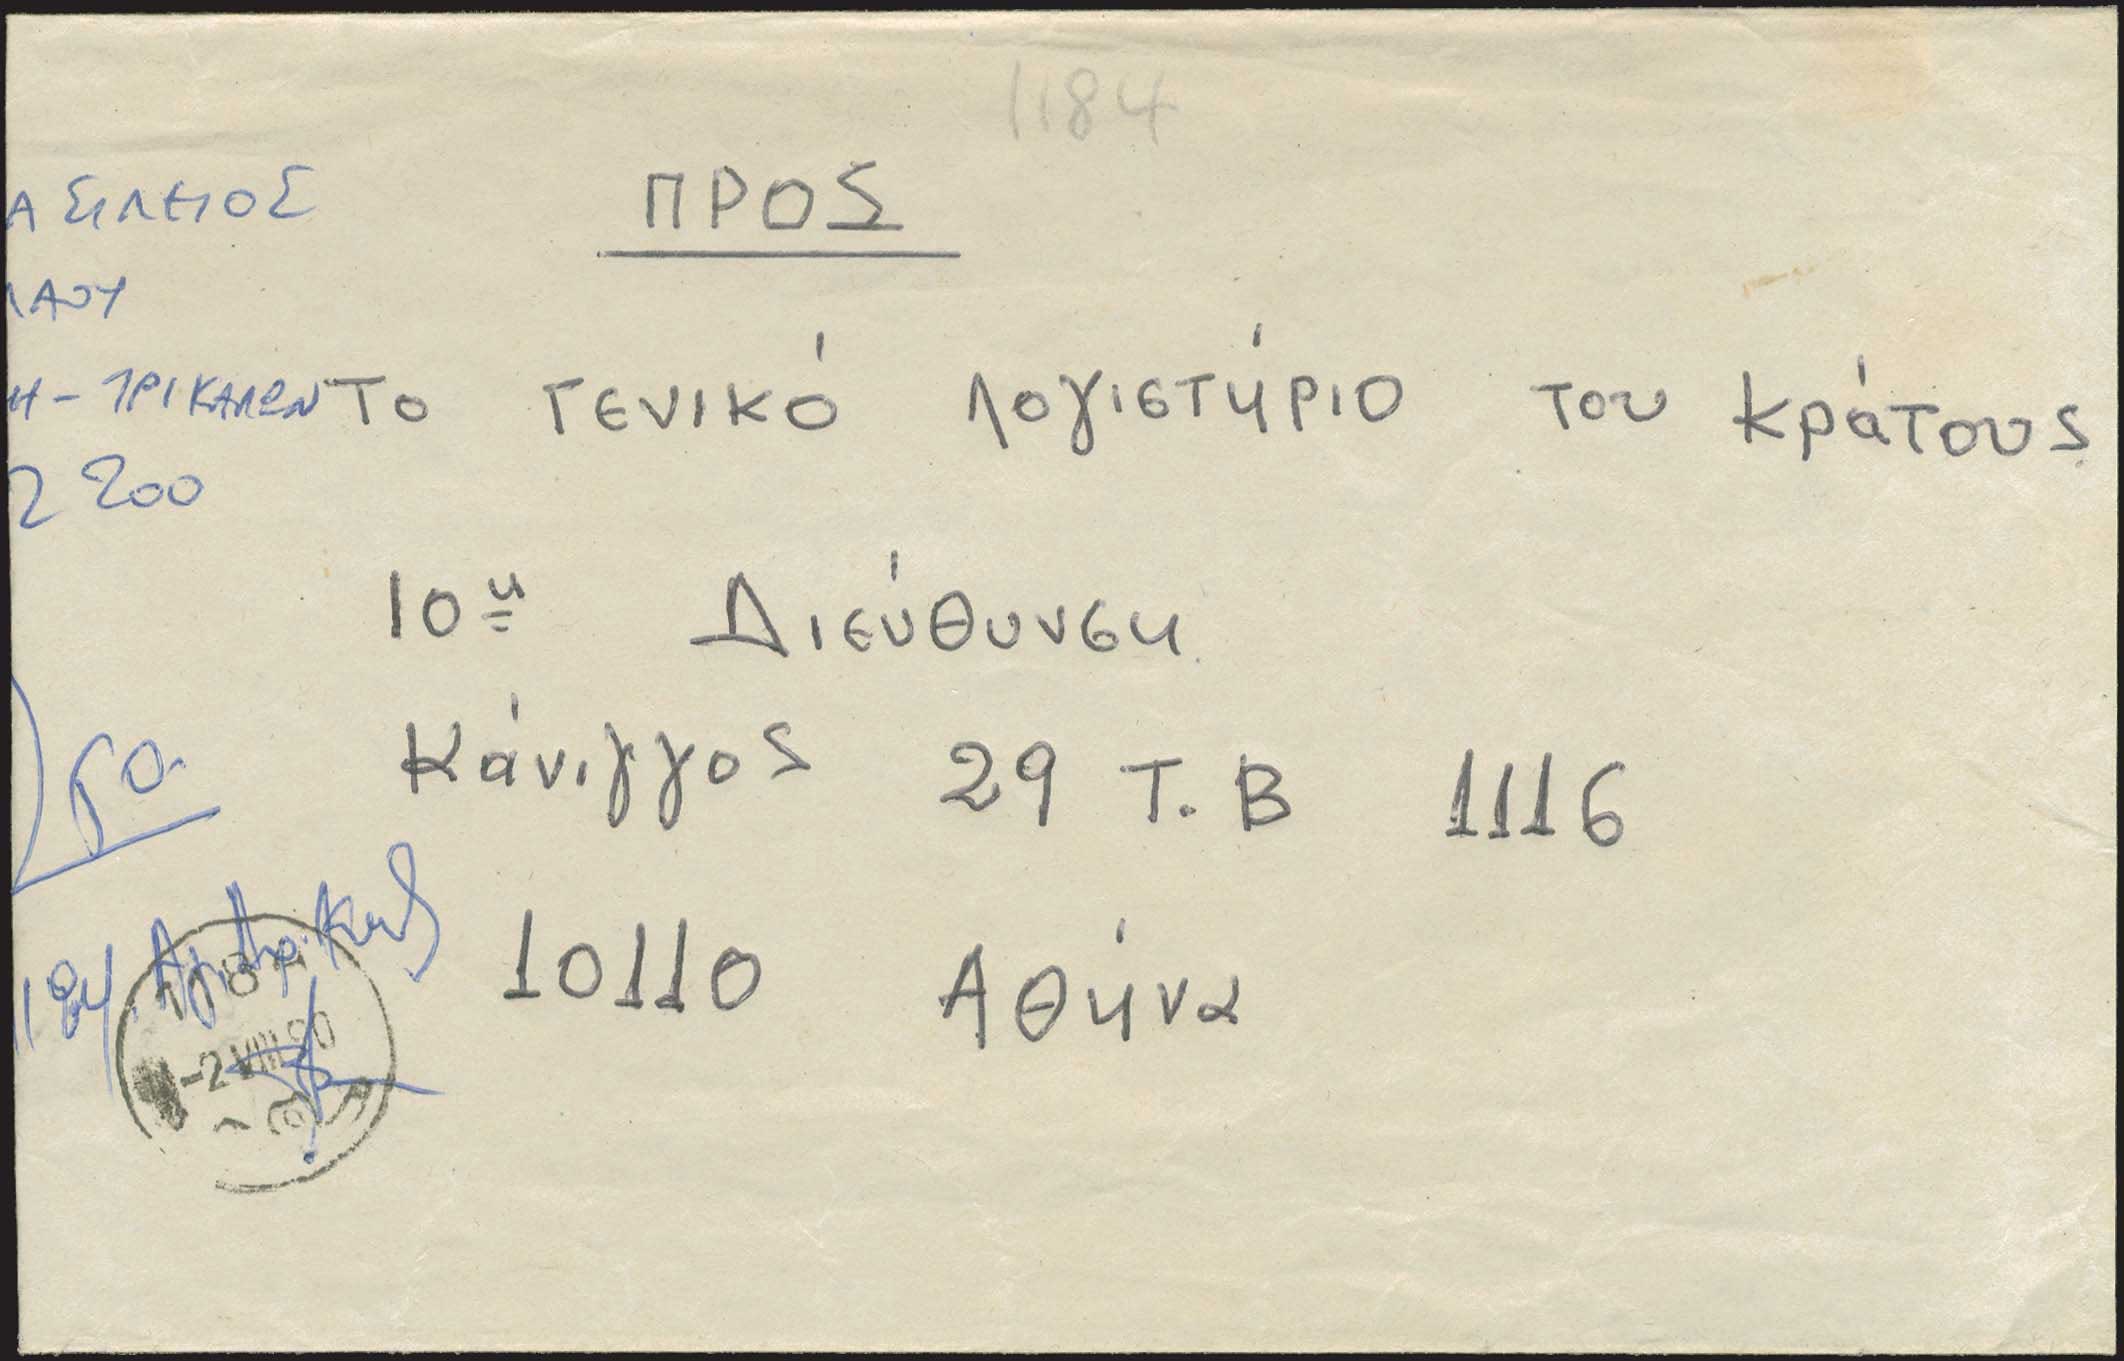 1184
ΠΡΟΣ
ΑΣΙΛΕΙΟΣ
ΛΑΟΥ
Η - ΤΡΙΚΑΛΩΝ
2 200
Το Γενικό Λογιστήριο του κράτους
10η Διεύθυνση
Κάνιγγος 29 Τ.Β 1116
10110 Αθήνα
1184
-2 VIII 90